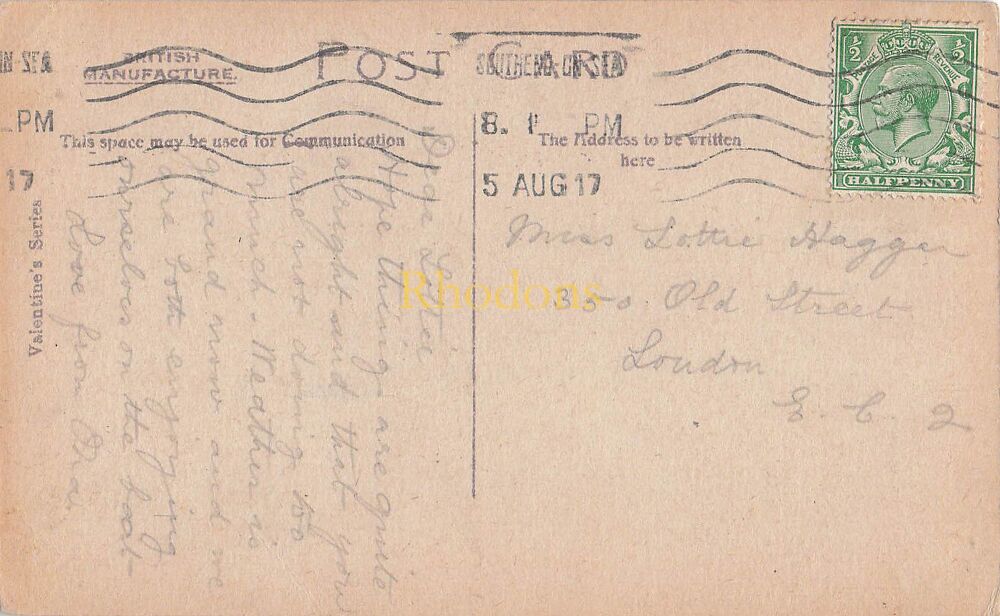 BRITISH
MANUFACTURE.
POST CARD
N SEA
PM
17
SOUTHEND ON SEA
8. 1 PM
5 AUG 17
½ ½
POSTAGE REVENUE
HALFPENNY
This space may be used for Communication
The Address to be written
here
Valentine's Series
Dear Lottie
Hope things are quite
alright and that you
are not doing too
much. Weather is
grand now and we
are both enjoying
ourselves on the boat
Love from
Miss Lottie Hagger
35-0 Old Street
London
E. C. 2
Rhodons